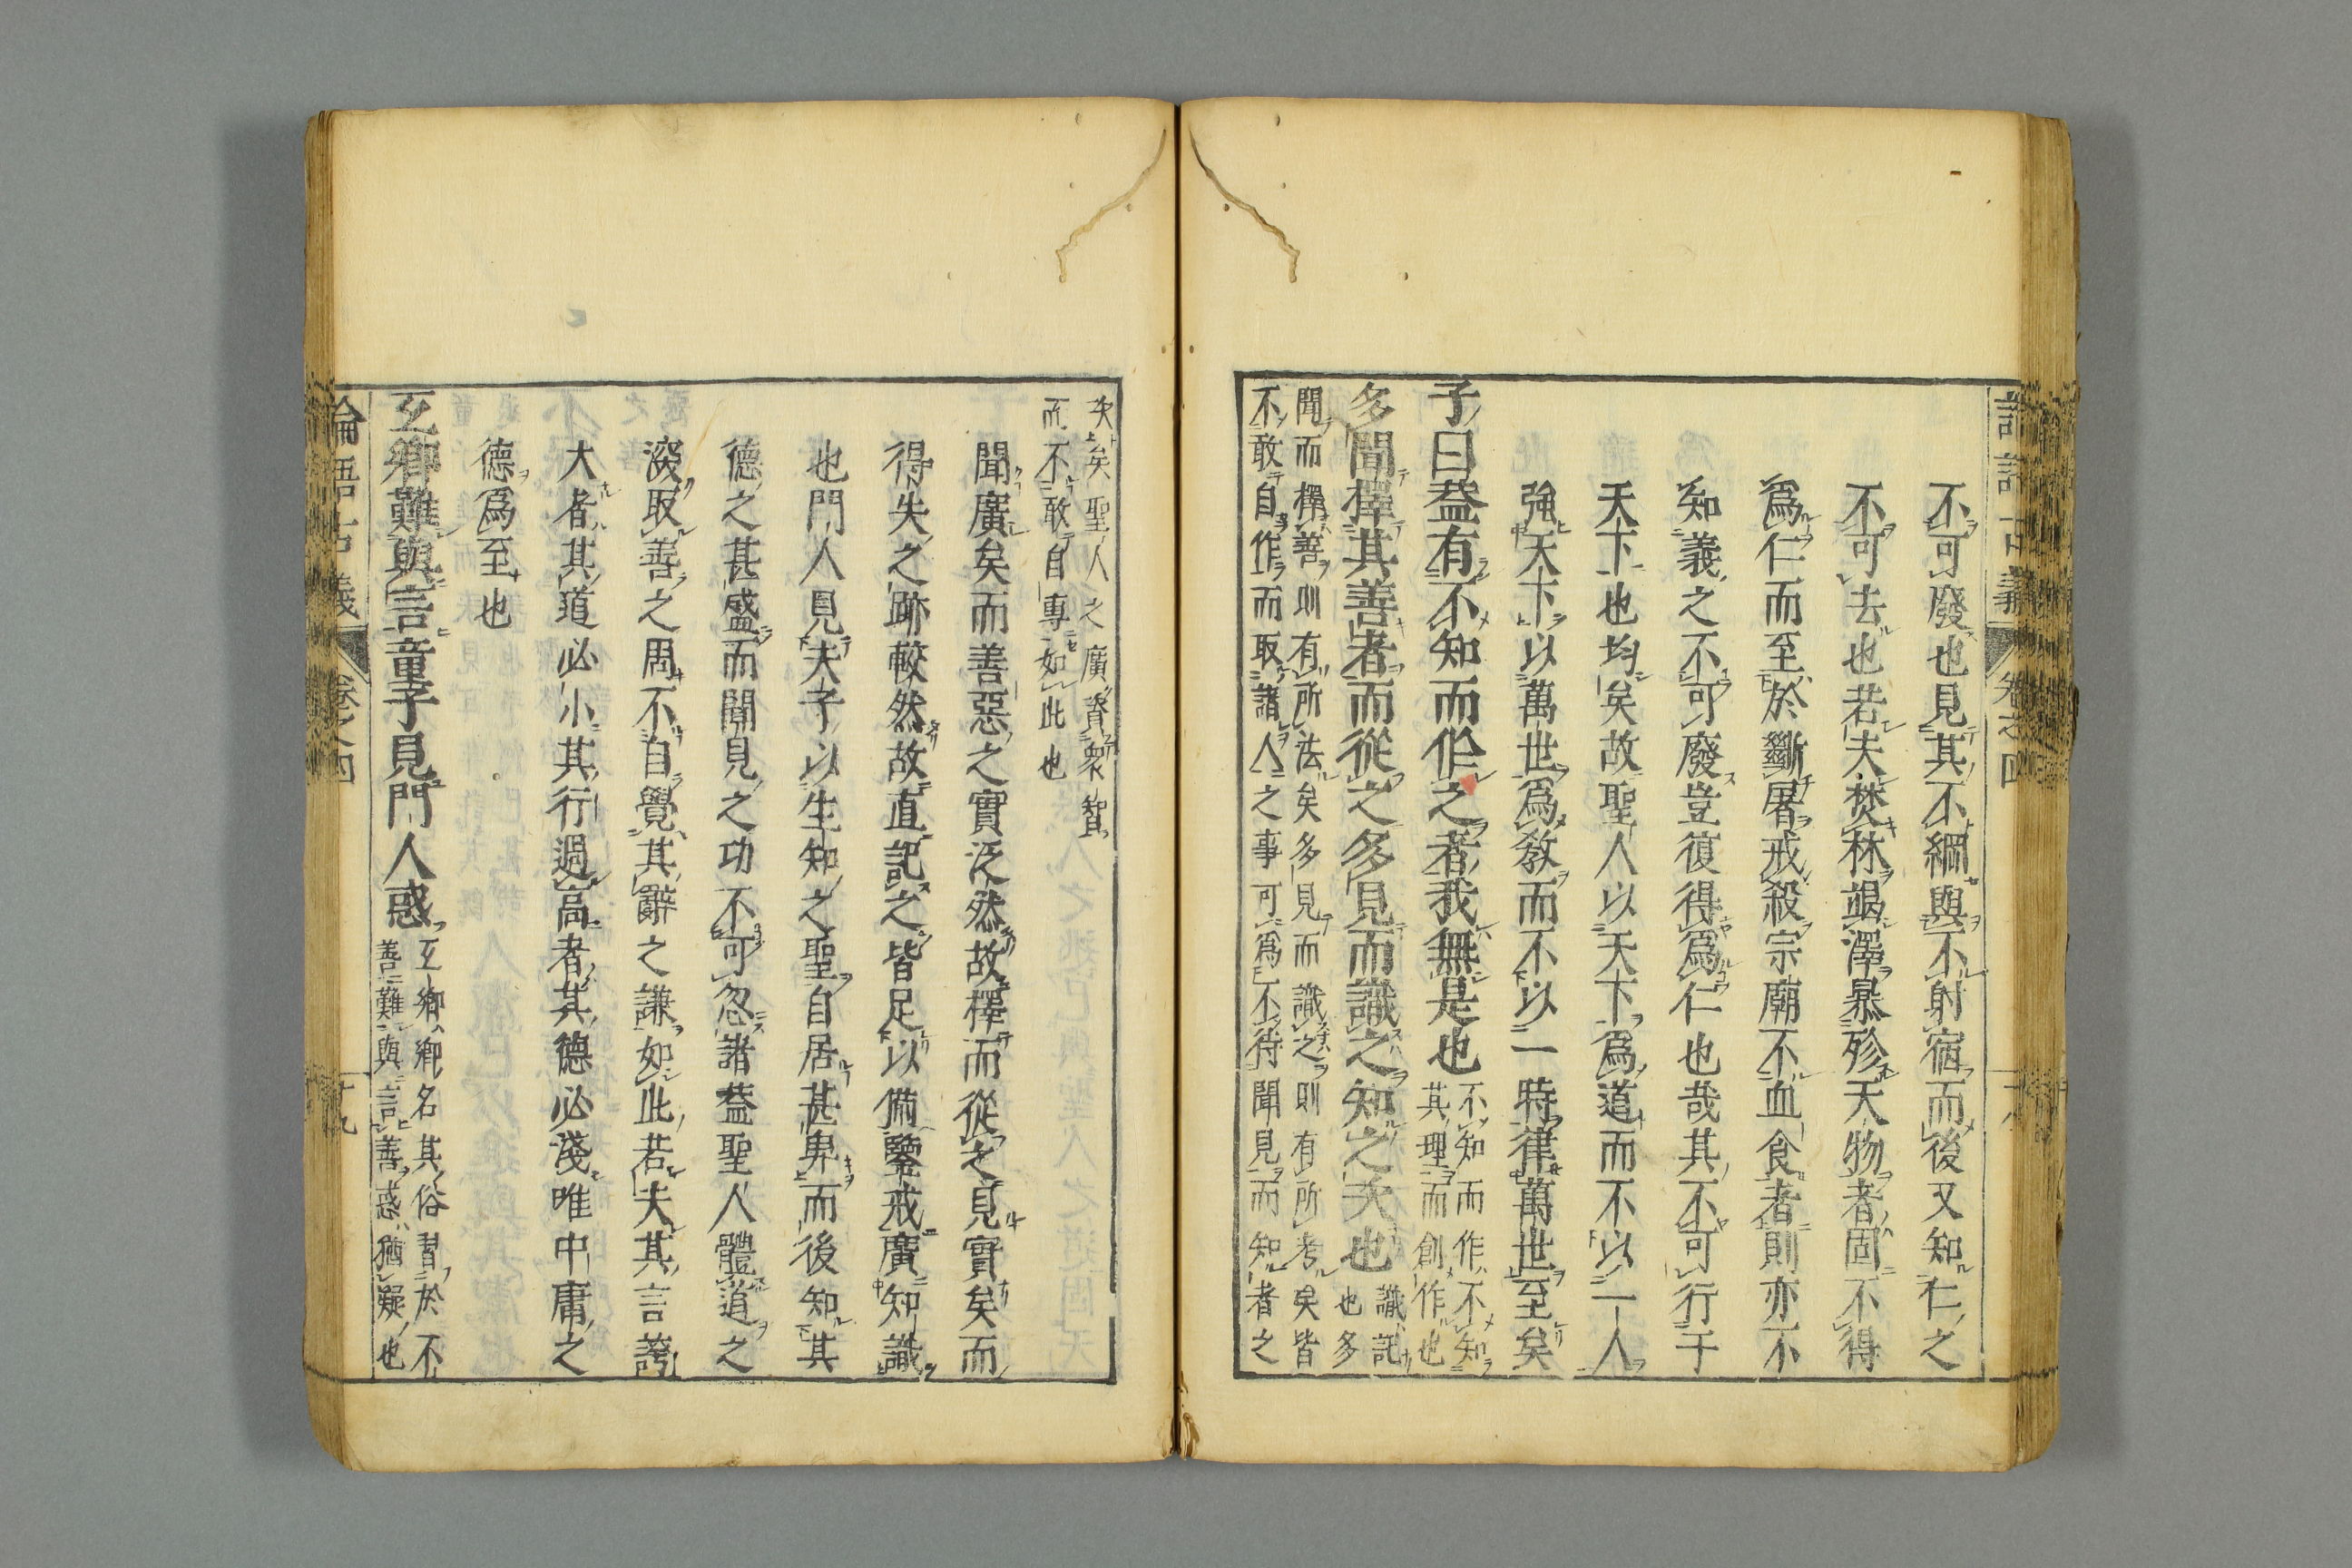 不可廢也見其不綱與不射宿而後又知仁之
不可去也若夫焚林竭澤暴殄天物者固不得
爲仁而至於斷屠戒殺宗廟不血食者則亦不
知義之不可廢豈復得爲仁也哉其不可行于
天下也均矣故聖人以天下爲道而不以一人
強天下以萬世爲教而不以一時律萬世至矣
子曰葢有不知而作之者我無是也
不知而作不知
其理而創作也
多聞擇其善者而從之多見而識之知之次也
識記
也多
聞而擇善則有所法矣多見而識之則有所考矣皆
不敢自作而取諸人之事可爲不待聞見而知者之
次矣聖人之廣資衆智
而不敢自專如此也
聞廣矣而善惡之實泛然故擇而從之見實矣而
得失之跡較然故直記之皆足以備鑒戒廣知識
也門人見夫子以生知之聖自居甚卑而後知其
德之甚盛而聞見之功不可忽諸葢聖人體道之
深取善之周不自覺其辭之謙如此若夫其言誇
大者其道必小其行過高者其德必淺唯中庸之
德爲至也
互鄉難與言童子見門人惑
互鄉鄉名其俗習於不
善難與言善惑猶疑也
論語古義
卷之四
十九